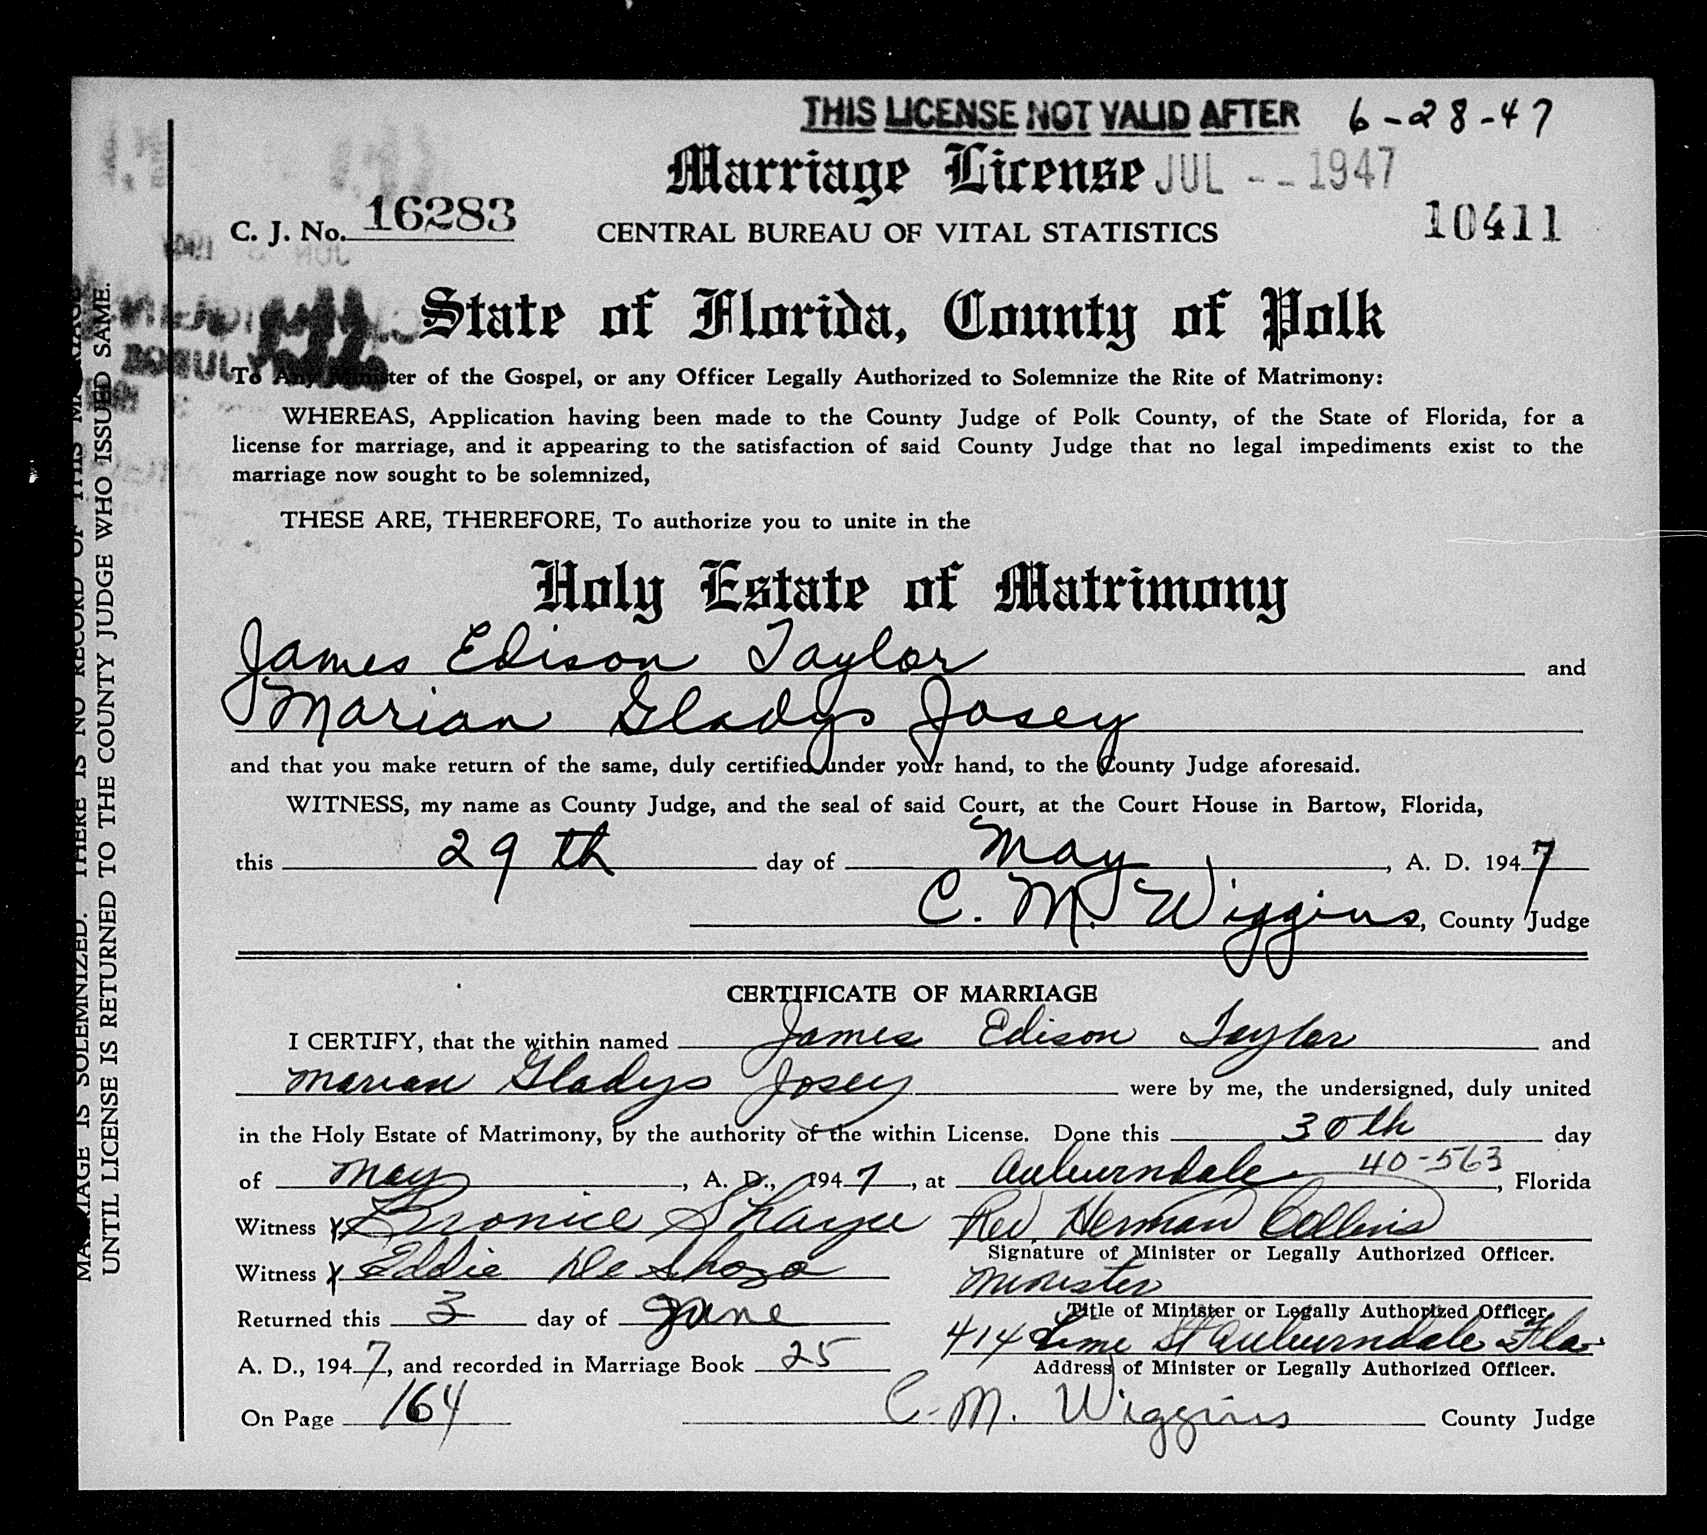 THIS LICENSE NOT VALID AFTER 6-28-47
Marriage License JUL -- 1947
C. J. No. 16283 CENTRAL BUREAU OF VITAL STATISTICS 10411
State of Florida, County of Polk
To Any Minister of the Gospel, or any Officer Legally Authorized to Solemnize the Rite of Matrimony:
WHEREAS, Application having been made to the County Judge of Polk County, of the State of Florida, for a
license for marriage, and it appearing to the satisfaction of said County Judge that no legal impediments exist to the
marriage now sought to be solemnized,
THESE ARE, THEREFORE, To authorize you to unite in the
Holy Estate of Matrimony
James Edison Taylor and
Marian Gladys Josey
and that you make return of the same, duly certified under your hand, to the County Judge aforesaid.
WITNESS, my name as County Judge, and the seal of said Court, at the Court House in Bartow, Florida,
this 29th day of May, A. D. 1947
C. M. Wiggins, County Judge
CERTIFICATE OF MARRIAGE
I CERTIFY, that the within named James Edison Taylor and
Marian Gladys Josey were by me, the undersigned, duly united
in the Holy Estate of Matrimony, by the authority of the within License. Done this 30th day
of May, A. D., 1947, at Auburndale 40-563, Florida
Witness X Bronice Rev. Herman Collins
Signature of Minister or Legally Authorized Officer.
Witness X Eddie De Shazo Minister
Title of Minister or Legally Authorized Officer
Returned this 3 day of June 414 Lime St Auburndale Fla.
A. D., 1947, and recorded in Marriage Book 25 Address of Minister or Legally Authorized Officer.
On Page 164 C. M. Wiggins County Judge
MARRIAGE IS SOLEMNIZED. THERE IS NO RECORD OF THIS MARRIAGE
UNTIL LICENSE IS RETURNED TO THE COUNTY JUDGE WHO ISSUED SAME.